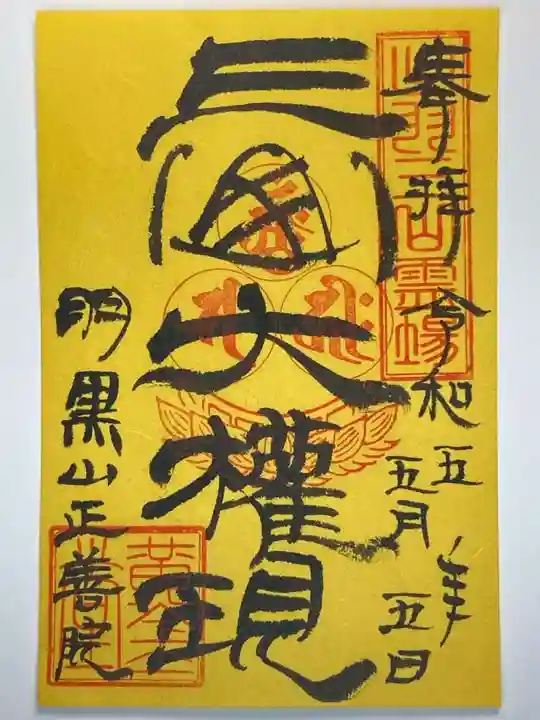 奉拝
令和五年
五月五日
三國大權現
羽黒山正善院
出羽三山霊場